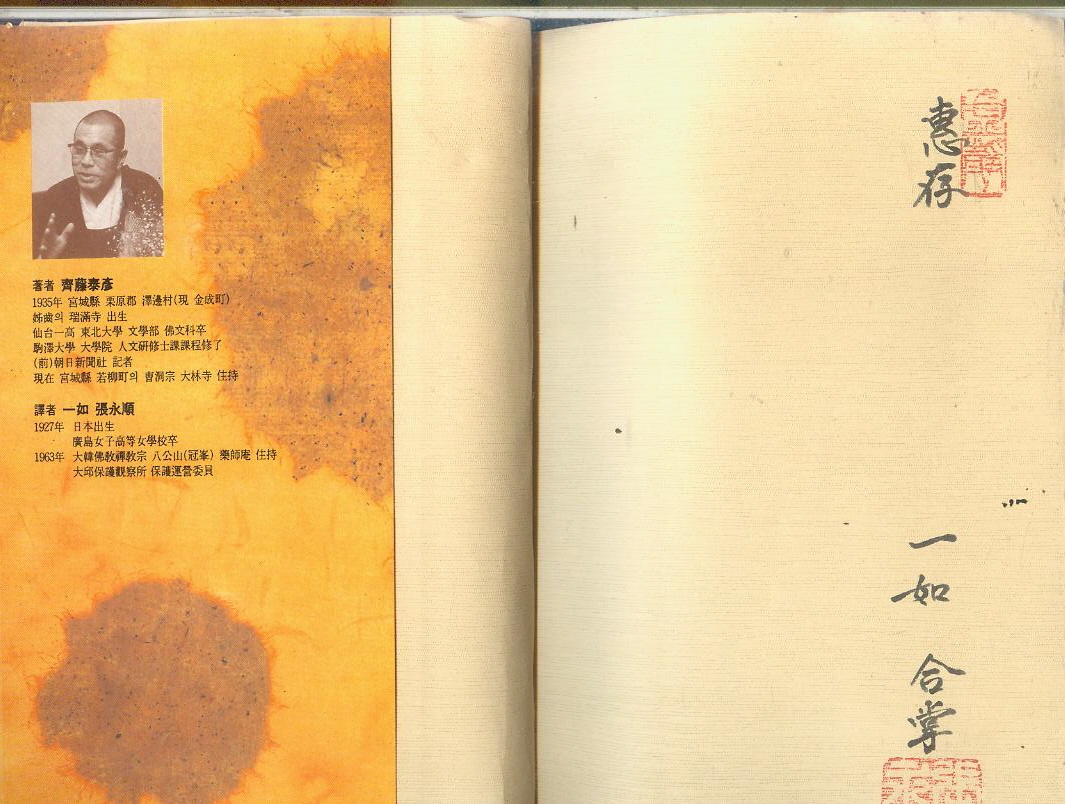 著者 齊藤泰彦
1935年 宮城縣 栗原郡 澤邊村(現 金成町)
姊齒의 瑞滿寺 出生
仙台一高 東北大學 文學部 佛文科卒
駒澤大學 大學院 人文研修士課課程修了
(前)朝日新聞社 記者
現在 宮城縣 若柳町의 曹洞宗 大林寺 住持
譯者 一如 張永順
1927年 日本出生
廣島女子高等女學校卒
1963年 大韓佛敎禪敎宗 八公山(冠峯) 藥師庵 住持
大邱保護觀察所 保護運營委員
惠存
一如 合掌